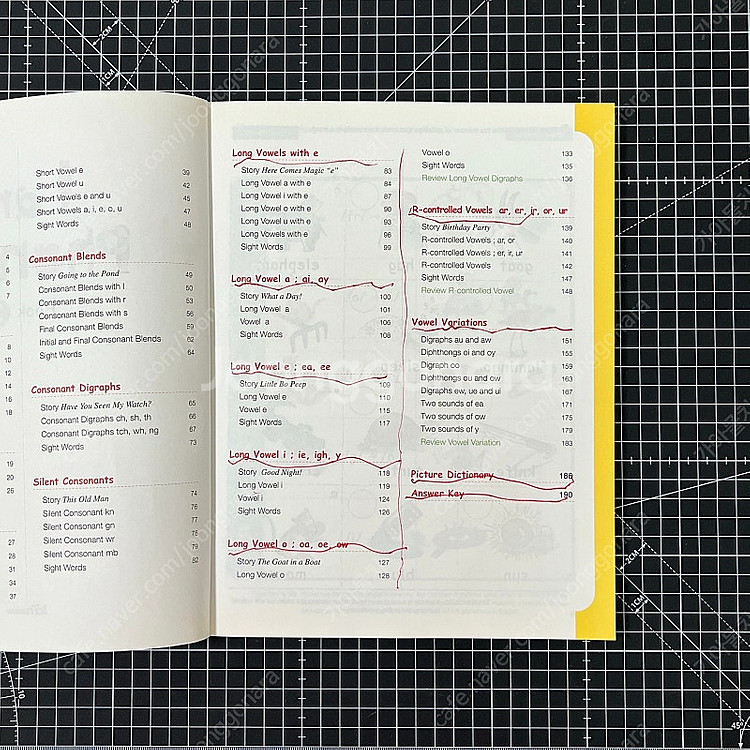 Short Vowel e 39
Short Vowel u 42
Short Vowels e and u 45
Short Vowels a, i, e, o, u 47
Sight Words 48
Consonant Blends
Story Going to the Pond 49
Consonant Blends with l 50
Consonant Blends with r 53
Consonant Blends with s 56
Final Consonant Blends 59
Initial and Final Consonant Blends 62
Sight Words 64
Consonant Digraphs
Story Have You Seen My Watch? 65
Consonant Digraphs ch, sh, th 66
Consonant Digraphs tch, wh, ng 67
Sight Words 73
Silent Consonants
Story This Old Man 74
Silent Consonant kn 76
Silent Consonant gn 77
Silent Consonant wr 78
Silent Consonant mb 79
Sight Words 82
4
5
6
7
8
10
12
14
16
18
19
20
26
27
28
31
34
37
Long Vowels with e
Story Here Comes Magic "e" 83
Long Vowel a with e 84
Long Vowel i with e 87
Long Vowel o with e 90
Long Vowel u with e 93
Long Vowels with e 96
Sight Words 99
Long Vowel a ; ai, ay
Story What a Day! 100
Long Vowel a 101
Vowel a 106
Sight Words 108
Long Vowel e ; ea, ee
Story Little Bo Peep 109
Long Vowel e 110
Vowel e 115
Sight Words 117
Long Vowel i ; ie, igh, y
Story Good Night! 118
Long Vowel i 119
Vowel i 124
Sight Words 126
Long Vowel o ; oa, oe, ow
Story The Goat in a Boat 127
Long Vowel o 128
Vowel o 133
Sight Words 135
Review Long Vowel Digraphs 136
R-controlled Vowels ar, er, ir, or, ur
Story Birthday Party 139
R-controlled Vowels ; ar, or 140
R-controlled Vowels ; er, ir, ur 141
R-controlled Vowels 142
Sight Words 147
Review R-controlled Vowel 148
Vowel Variations
Digraphs au and aw 151
Diphthongs oi and oy 155
Digraph oo 159
Diphthongs ou and ow 163
Digraphs ew, ue and ui 167
Two sounds of ea 171
Two sounds of ow 175
Two sounds of y 179
Review Vowel Variation 183
Picture Dictionary 186
Answer Key 190